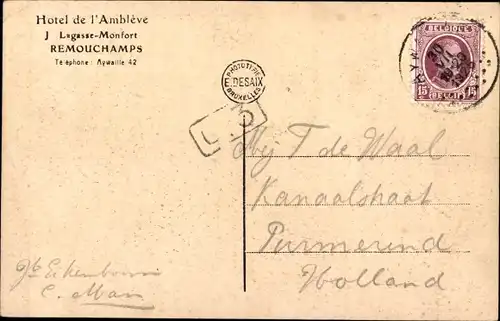 Hotel de l'Amblève
J Lagasse-Monfort
REMOUCHAMPS
Telephone: Aywaille 42
PHOTOTYPIE
E. DESAIX
BRUXELLES
BELGIQUE
15 15
BELGIË
Mej T de Waal
Kanaalstraat
Purmerend
Holland